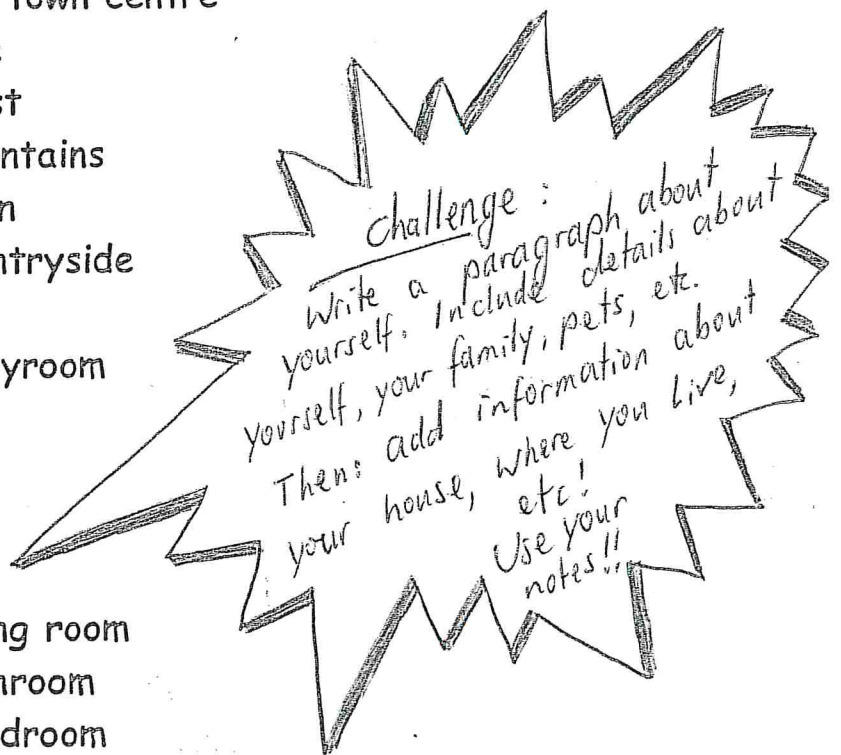 Town centre
st
ntains
n
ntryside
yroom
ng room
nroom
droom
Challenge :
Write a paragraph about
yourself. Include details about
yourself, your family, pets, etc.
Then: add information about
your house, where you live,
etc!
Use your
notes!!